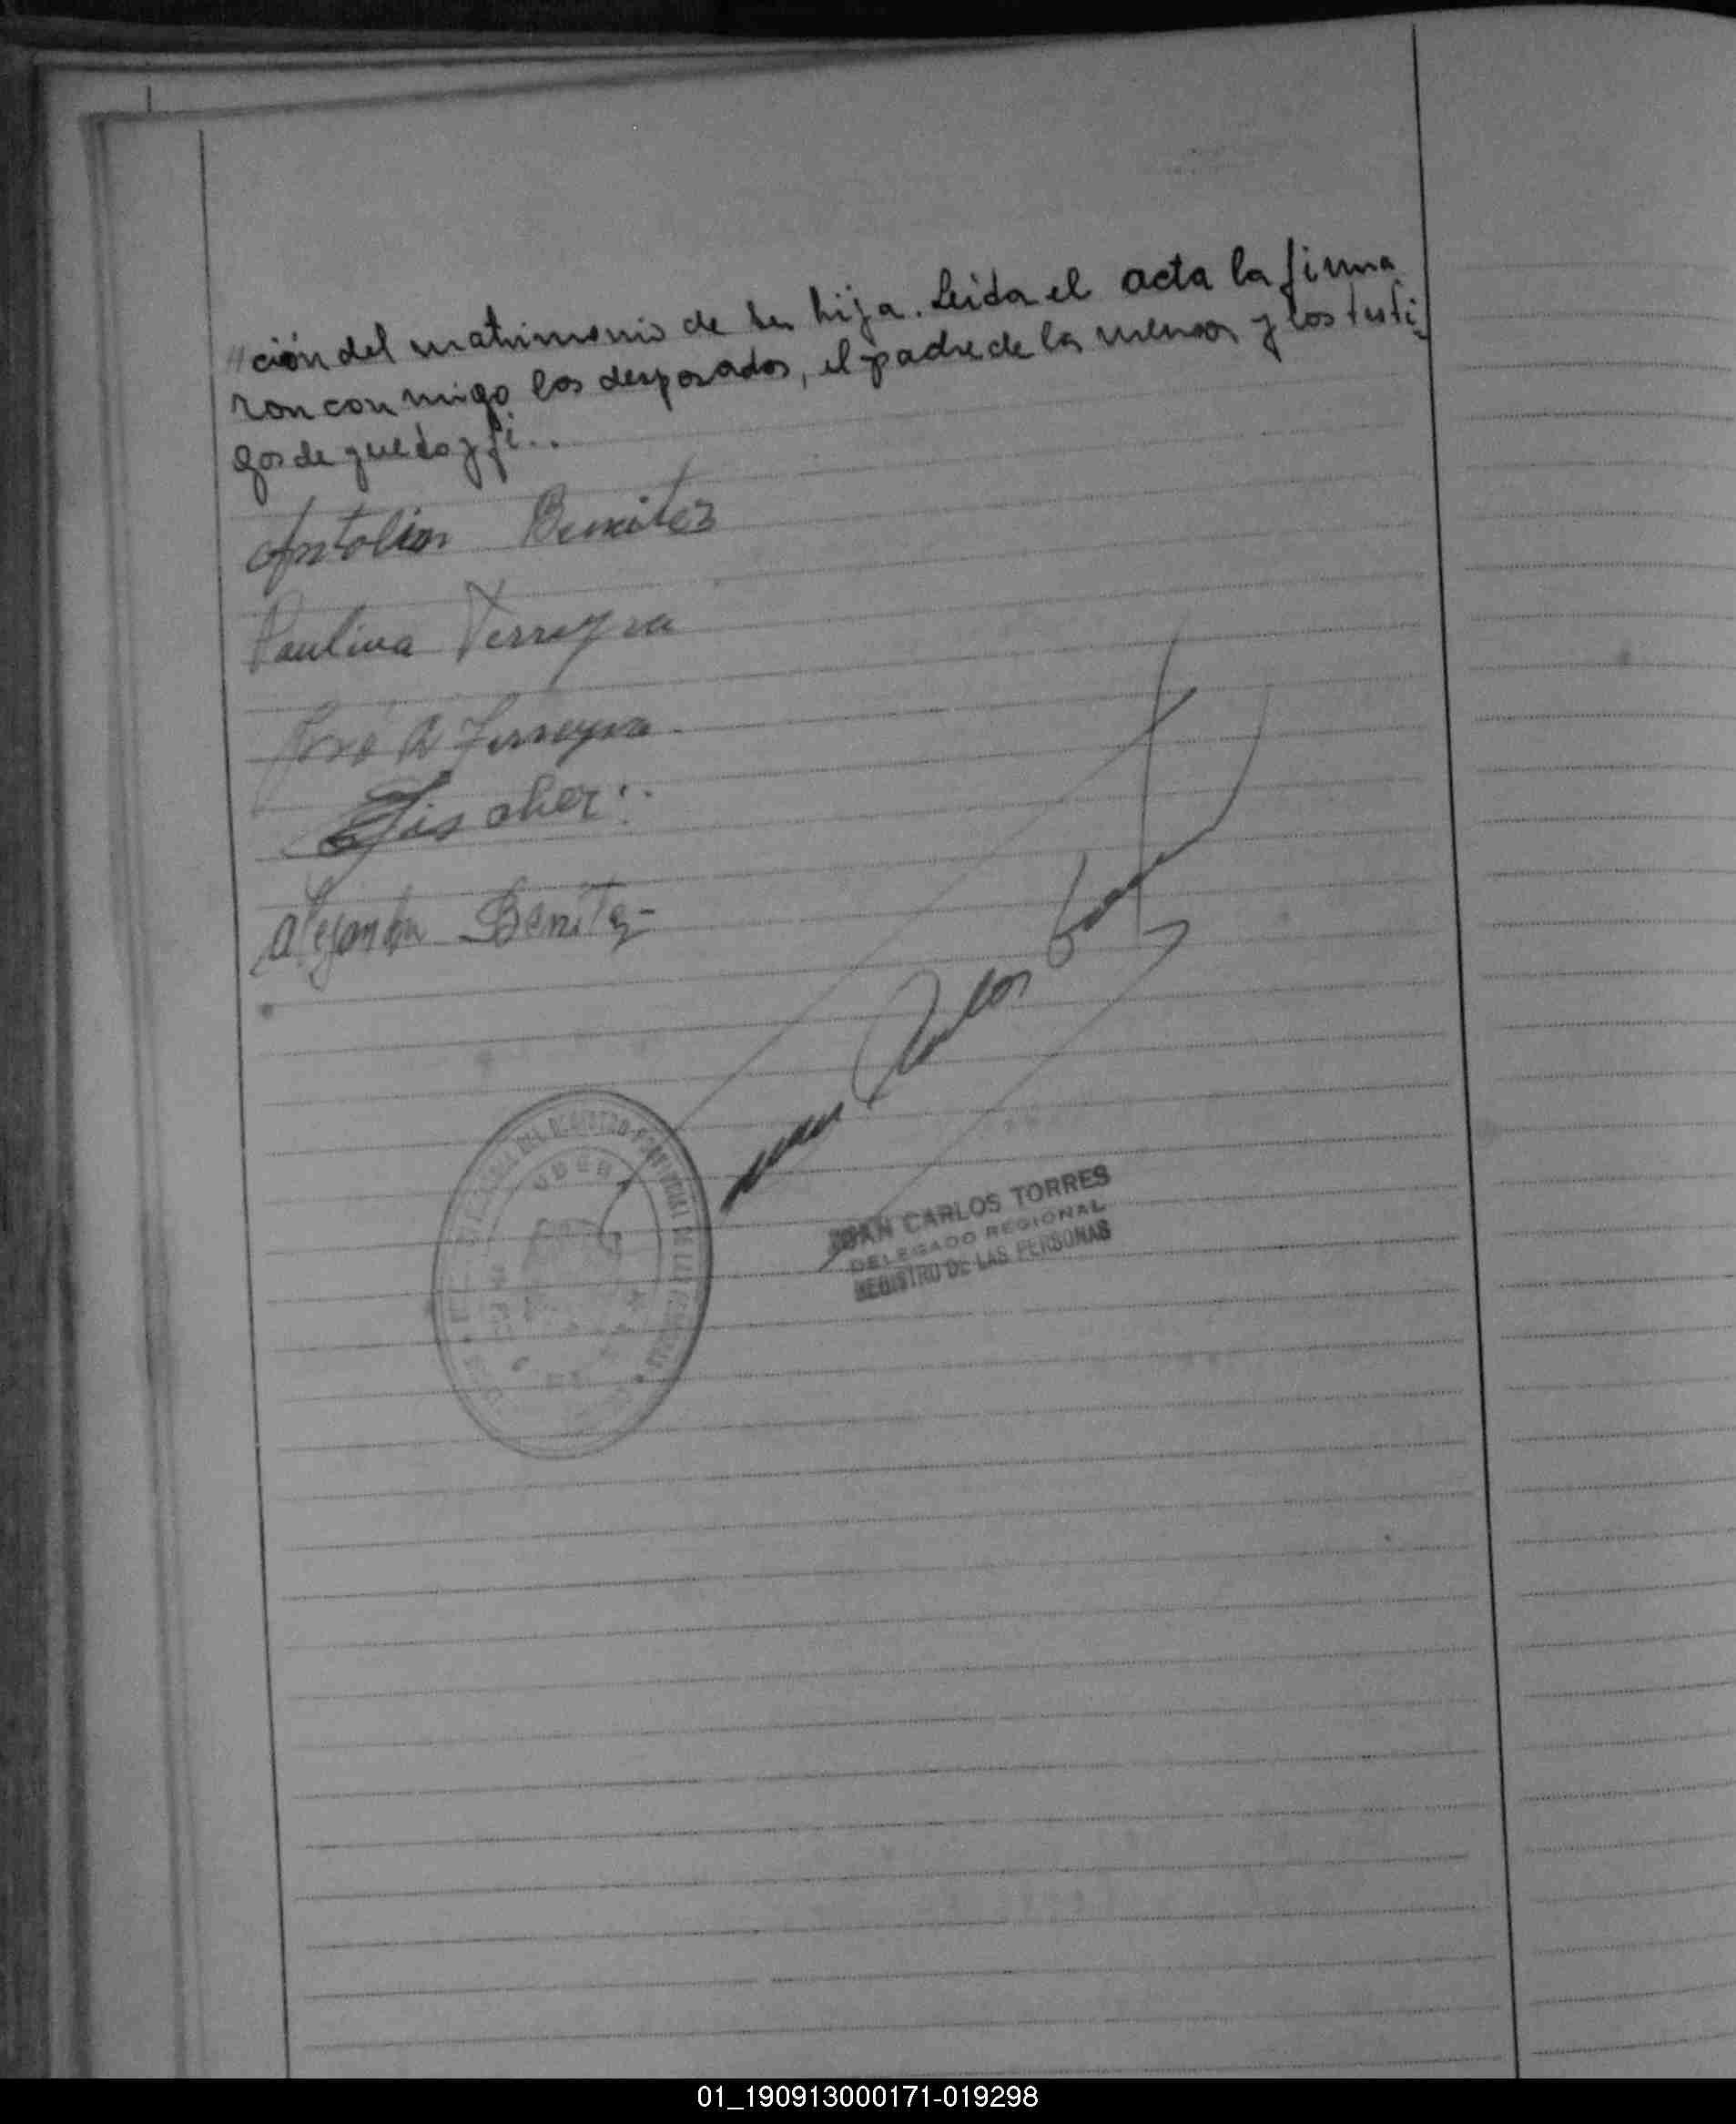 "ción del matrimonio de su hija. Leida el acta la firma
ron con migo los desposados, el padre de la menor y los testi
gos de que doy fé..
Antolin Benitez
Paulina Ferreyra
José A Ferreyra
Fischer
Alejandro Benitez
Juan Carlos Torres
DEL REGISTRO PROVINCIAL DE LAS PERSONAS
JUAN CARLOS TORRES
DELEGADO REGIONAL
REGISTRO DE LAS PERSONAS
01_190913000171-019298